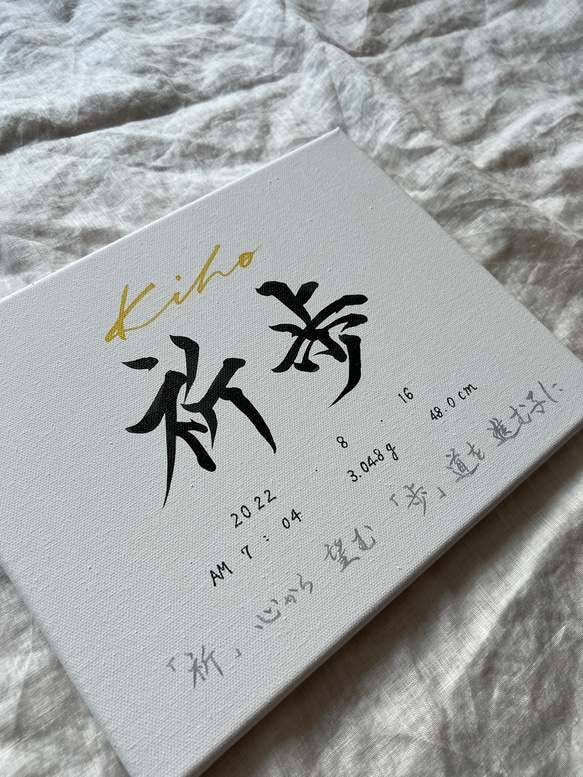 Kiho
祈歩
2022 . 8 . 16
AM 7 : 04 3.048g 48.0cm
「祈」心から望む「歩」道を進む子に